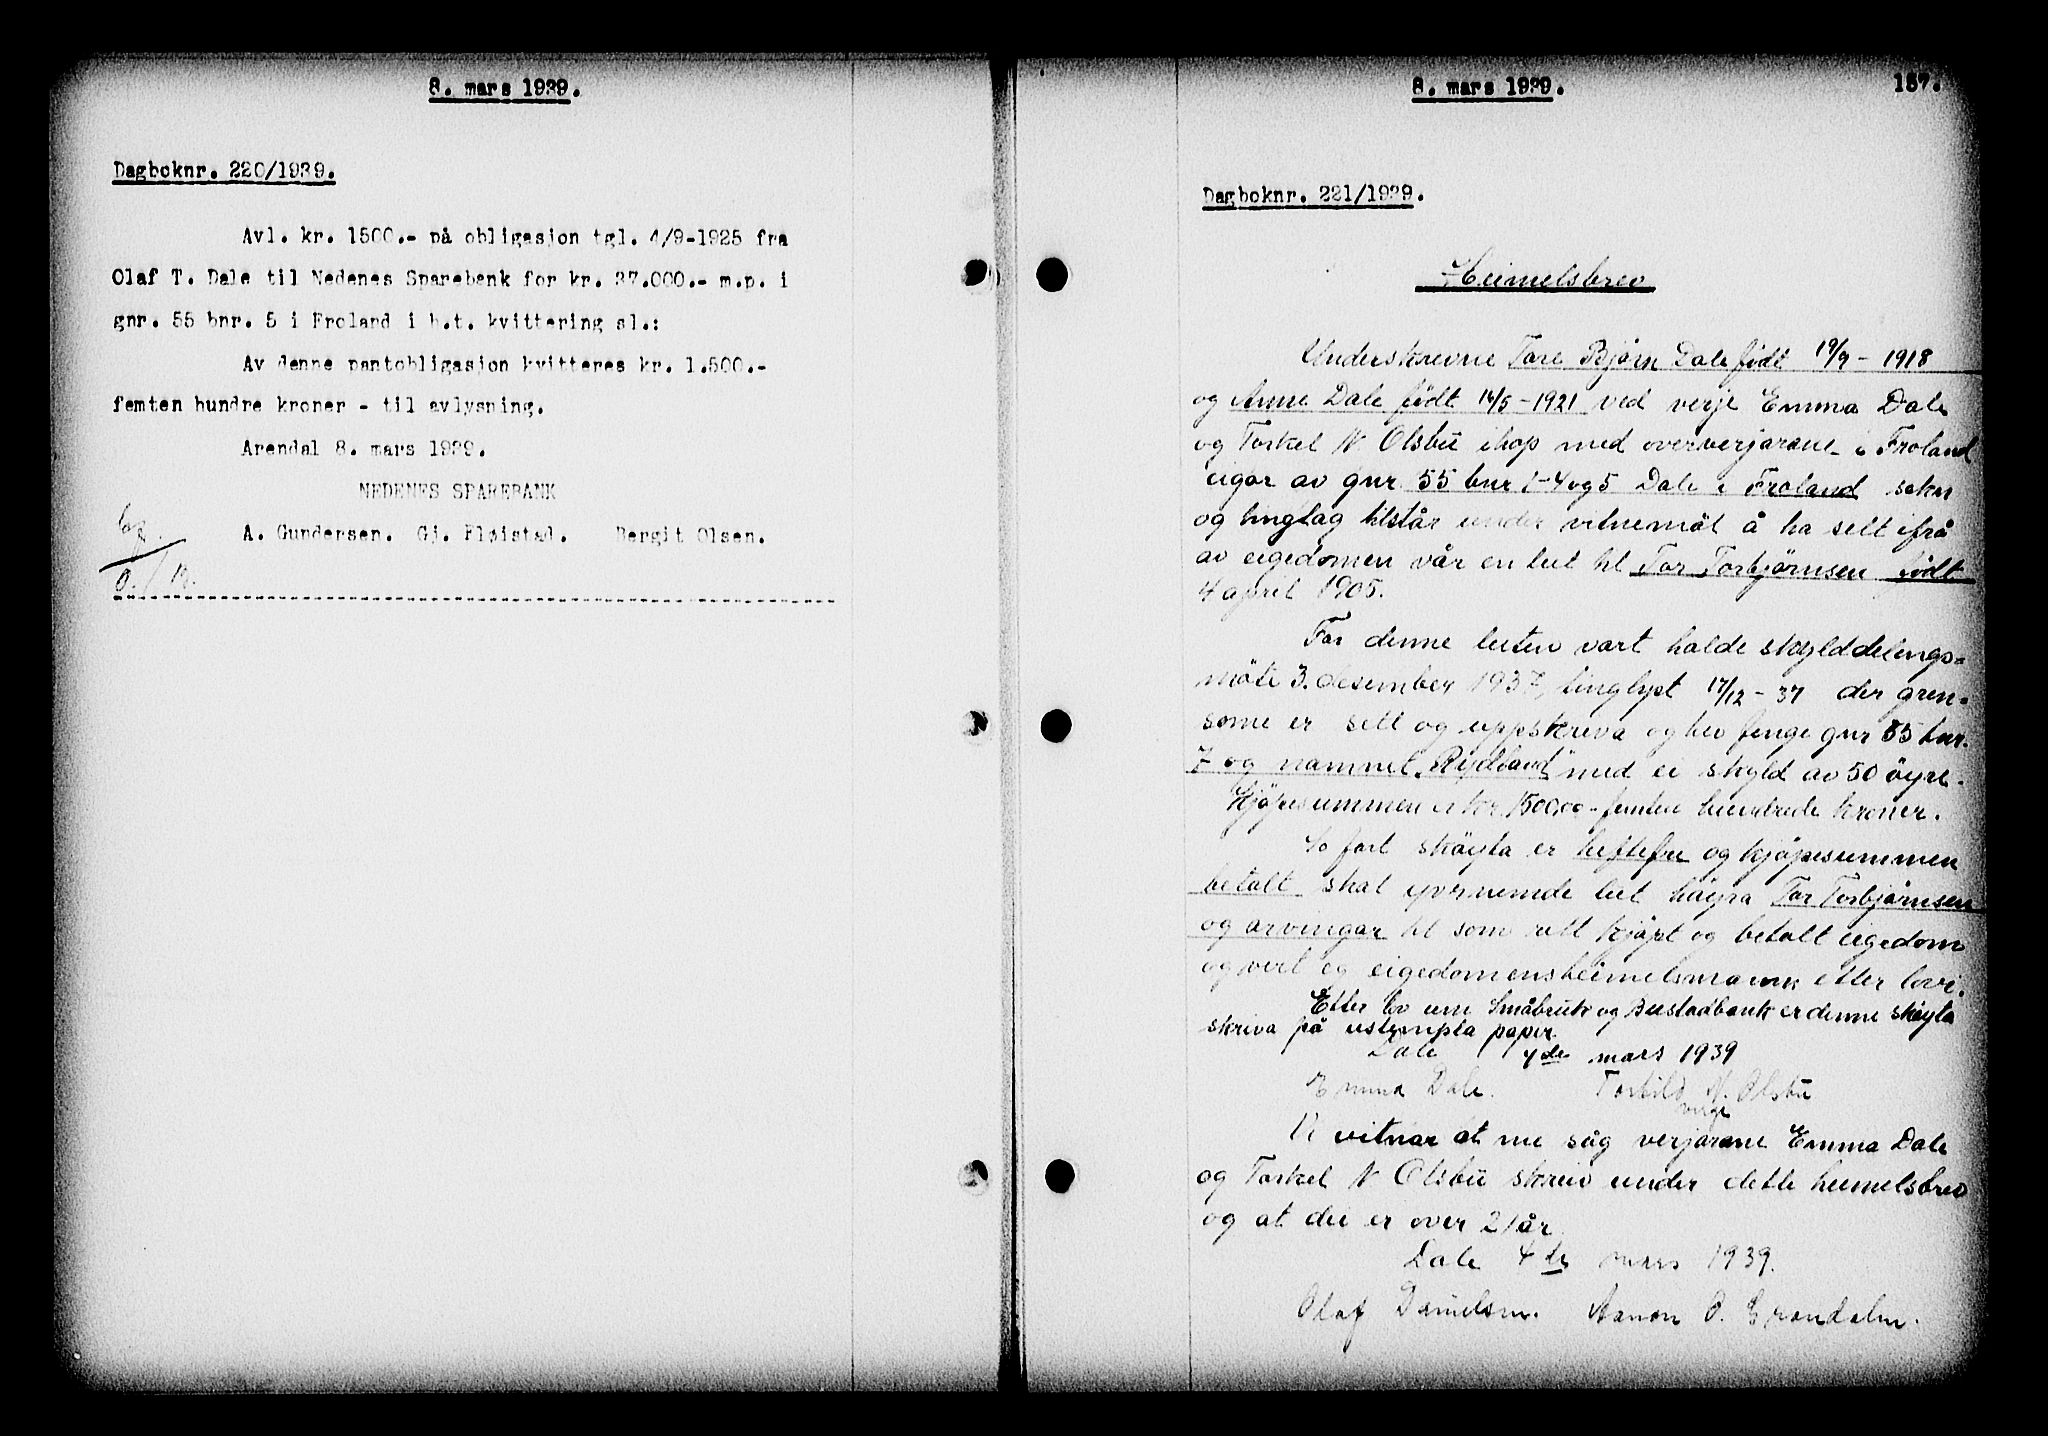 8. mars 1939.
Dagboknr. 220/1939.
Avl. kr. 1500.- på obligasjon tgl. 4/9-1925 fra
Olaf T. Dale til Nedenes Sparebank for kr. 37.000.- m.p. i
gnr. 55 bnr. 5 i Froland i h.t. kvittering sl.:
Av denne pantobligasjon kvitteres kr. 1.500.-
femten hundre kroner - til avlysning.
Arendal 8. mars 1939.
NEDENES SPAREBANK
A. Gundersen. Gj. Fløistad. Bergit Olsen.
8. mars 1939. 157.
Dagboknr. 221/1939.
Heimelsbrev
Underskrevne Tore Bjørn Dale født 19/9 - 1918
og Anne Dale født 14/5 - 1921 ved verje Emma Dale
og Torkel N. Olsbu ihop med oververjarane i Froland
eigar av gnr. 55 bnr 1-4 og 5 Dale i Froland sokn
og tinglag tilstår under vitnemål å ha selt ifrå
av eigedomen vår en lut til Tor Torbjørnsen født
4 april 1905.
For denne luten vart halde skylddelings-
møte 3. desember 1937, tinglyst 17/12 - 37 der gren-
sone er sett og uppskriva og hev fenge gnr 55 bnr.
7 og namnet "Rydland" med ei skyld av 50 öyre.
Kjøpesummen er kr. 1500,00 - femten hundrede kroner.
So fort skøyta er heftefri og kjøpesummen
betalt skal ovrnemde lut høyra Tor Torbjørnsen
og arvingar til som rett kjøpt og betalt eigedom
og vert eg eigedomensheimelsmann etter lovi.
Etter lov um Småbruk og Bustadbank er denne skøyta
skriva på ustempla papir
Dale 4de mars 1939
Emma Dale. Torkild N. Olsbu
verje
Vi vitnar at me såg verjarane Emma Dale
og Torkel N Olsbu skreiv under dette heimelsbrev
og at dei er over 21 år
Dale 4de mars 1939.
Olaf Danielsen. Aanon O.